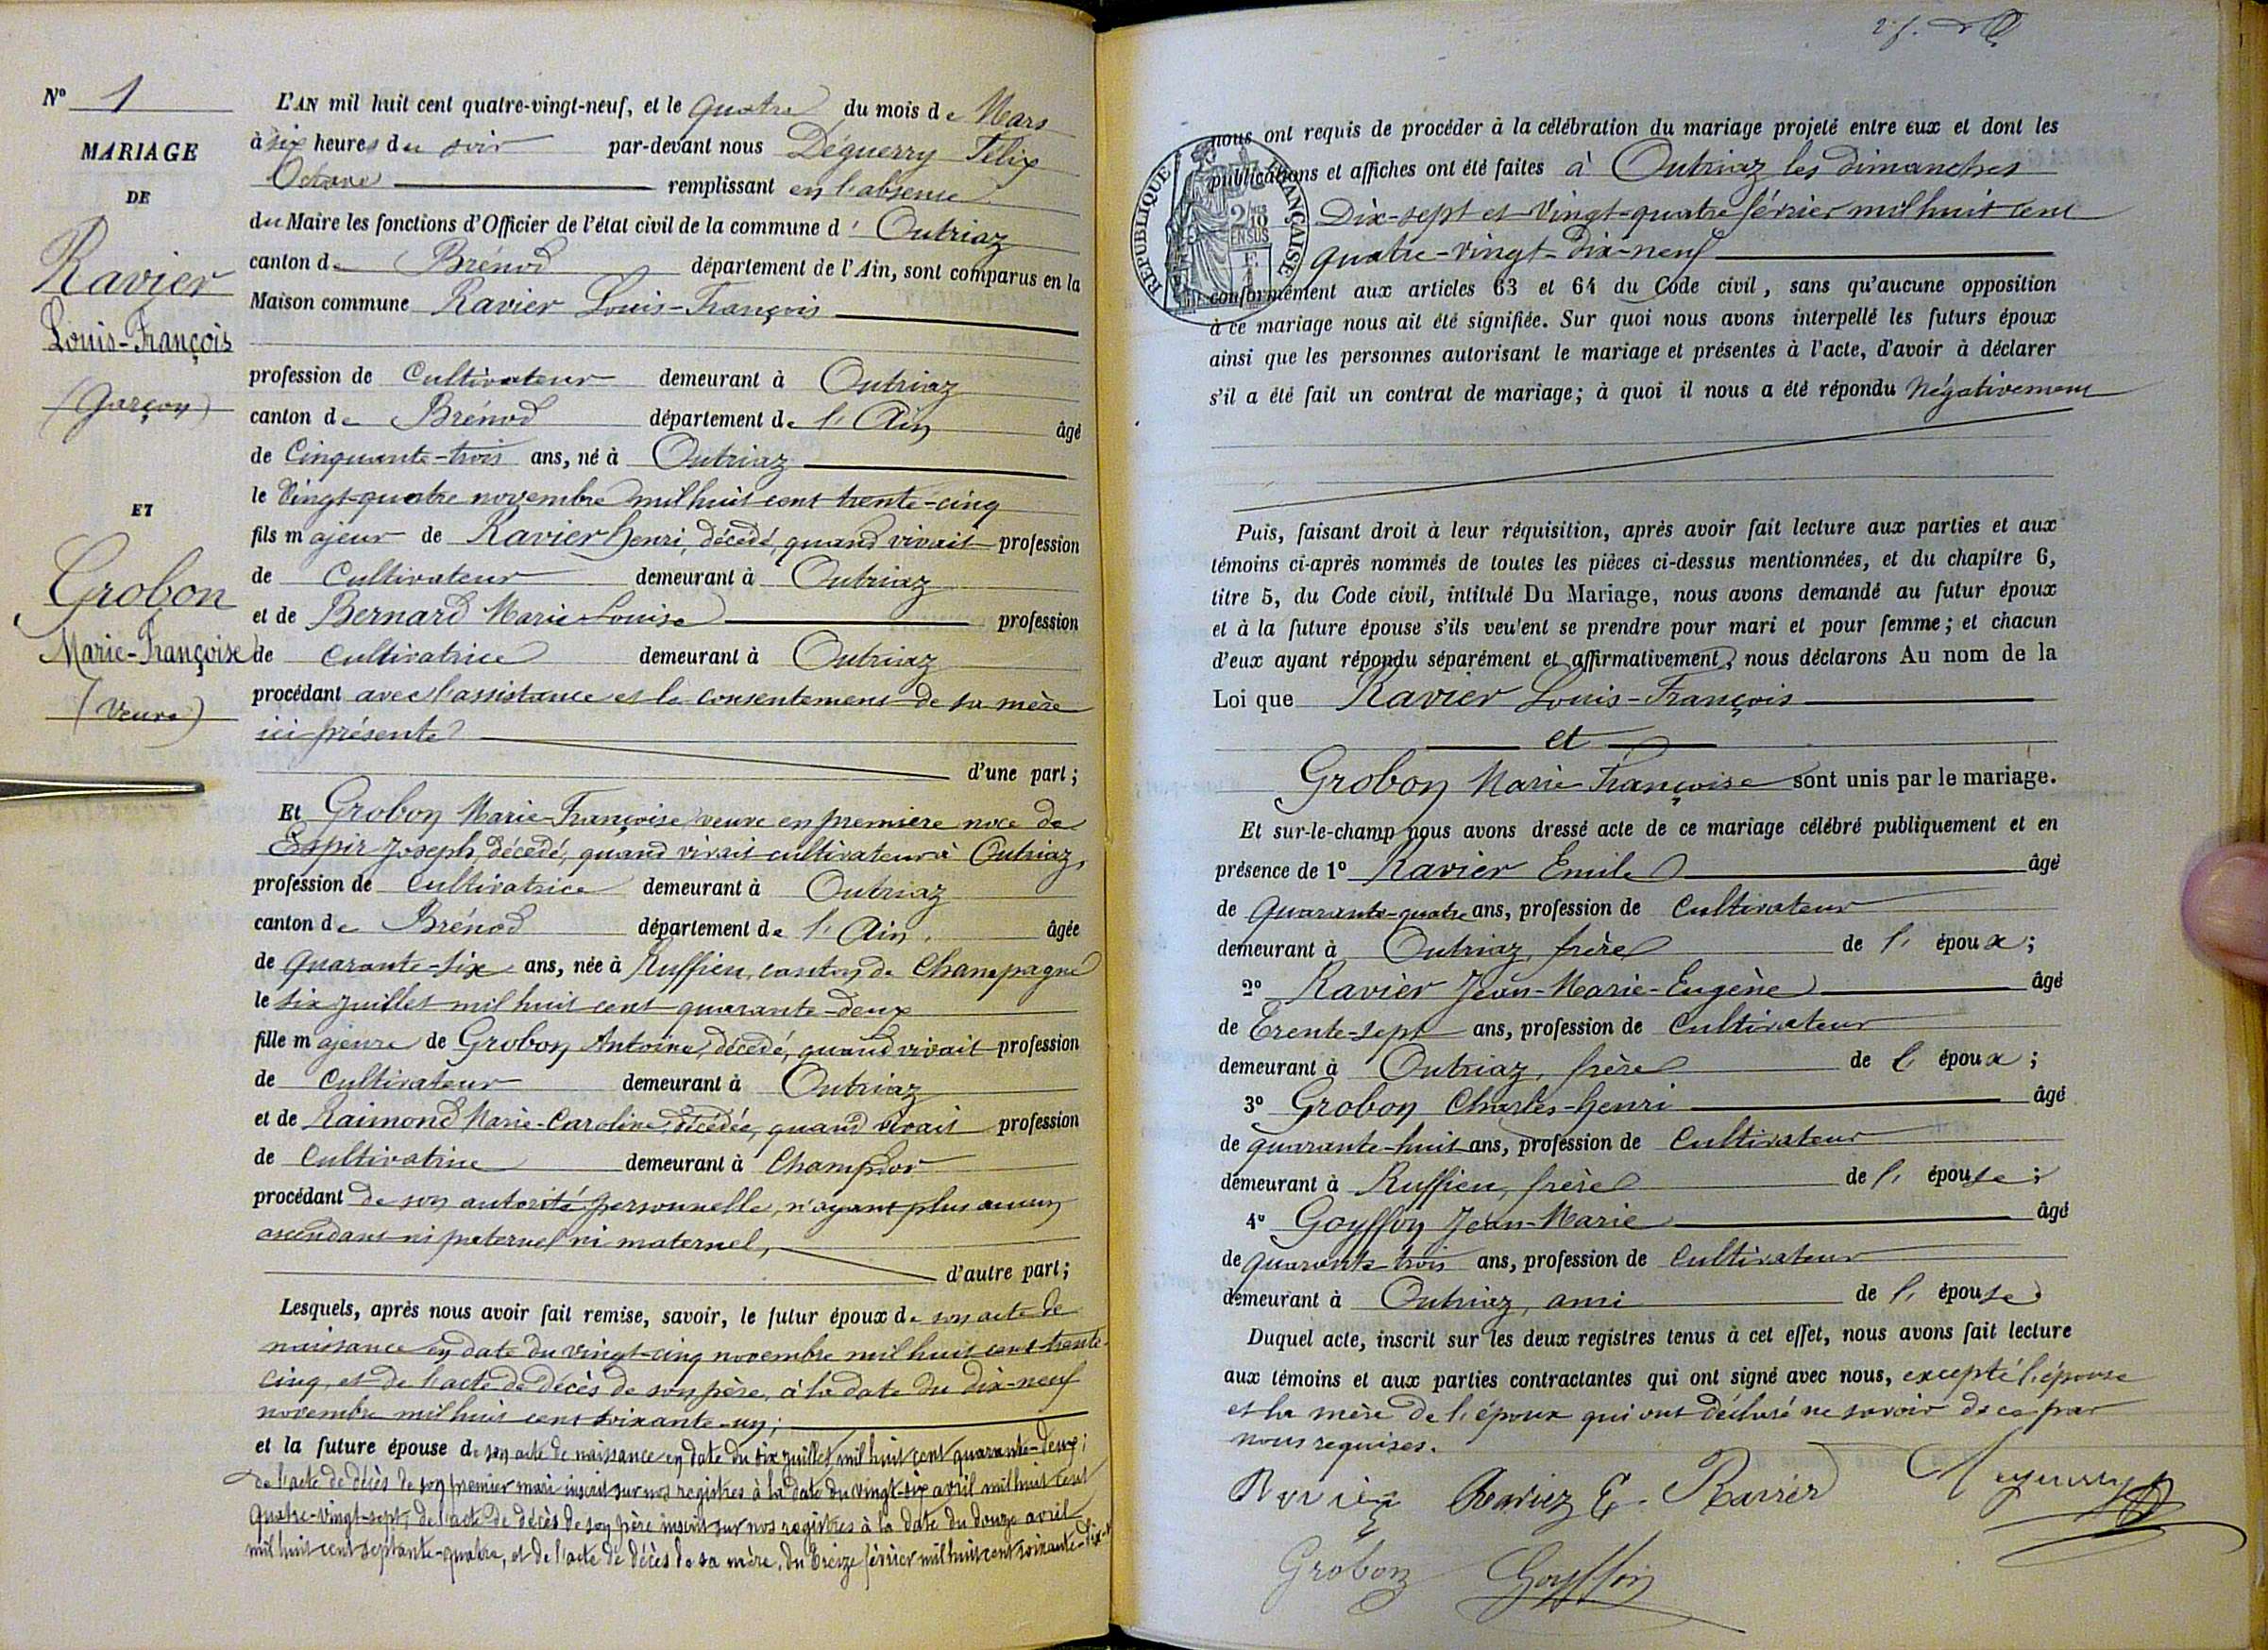 N° 1
MARIAGE
DE
Ravier
Louis-François
(Garçon)
ET
Grobon
Marie-Françoise
(Veuve)
L'AN mil huit cent quatre-vingt-neuf, et le quatre du mois de Mars
à six heures du soir par-devant nous Déguerry Félix
Octave remplissant en l'absence
du Maire les fonctions d'Officier de l'état civil de la commune d' Outriaz
canton de Brénod département de l'Ain, sont comparus en la
Maison commune Ravier Louis-François
profession de Cultivateur demeurant à Outriaz
canton de Brénod département de l'Ain âgé
de Cinquante-trois ans, né à Outriaz
le vingt-quatre novembre mil huit cent trente-cinq
fils majeur de Ravier henri, décédé, quand vivait profession
de Cultivateur demeurant à Outriaz
et de Bernard Marie-Louise profession
de Cultivatrice demeurant à Outriaz
procédant avec l'assistance et le consentement de sa mère
ici présente
d'une part;
Et Grobon Marie-Françoise veuve en première noce de
Espir Joseph, décédé, quand vivait cultivateur à Outriaz,
profession de Cultivatrice demeurant à Outriaz
canton de Brénod département de l'Ain. âgée
de quarante-six ans, née à Ruffieu, canton de Champagne
le six juillet mil huit cent quarante-deux
fille majeure de Grobon Antoine, décédé, quand vivait profession
de Cultivateur demeurant à Outriaz
et de Raimond Marie-Caroline, décédée, quand vivait profession
de Cultivatrice demeurant à Champdor
procédant de son autorité personnelle, n'ayant plus aucun
ascendant ni paternel ni maternel,
d'autre part;
Lesquels, après nous avoir fait remise, savoir, le futur époux de son acte de
naissance en date du vingt-cinq novembre mil huit cent trente-
cinq, et de l'acte de décès de son père, à la date du dix-neuf
novembre mil huit cent soixante-un;
et la future épouse de son acte de naissance en date du six juillet mil huit cent quarante-deux;
de l'acte de décès de son premier mari inscrit sur nos registres à la date du vingt-six avril mil huit cent
quatre-vingt-sept, de l'acte de décès de son père inscrit sur nos registres à la date du douze avril
mil huit cent septante-quatre, et de l'acte de décès de sa mère, du treize février mil huit cent soixante-dix
nous ont requis de procéder à la célébration du mariage projeté entre eux et dont les
publications et affiches ont été faites à Outriaz les dimanches
Dix-sept et vingt-quatre février mil huit cent
quatre-vingt-dix-neuf
RÉPUBLIQUE FRANÇAISE
2/10
EN SUS
conformément aux articles 63 et 64 du Code civil, sans qu'aucune opposition
à ce mariage nous ait été signifiée. Sur quoi nous avons interpellé les futurs époux
ainsi que les personnes autorisant le mariage et présentes à l'acte, d'avoir à déclarer
s'il a été fait un contrat de mariage; à quoi il nous a été répondu Négativement
Puis, faisant droit à leur réquisition, après avoir fait lecture aux parties et aux
témoins ci-après nommés de toutes les pièces ci-dessus mentionnées, et du chapitre 6,
titre 5, du Code civil, intitulé Du Mariage, nous avons demandé au futur époux
et à la future épouse s'ils veulent se prendre pour mari et pour femme; et chacun
d'eux ayant répondu séparément et affirmativement, nous déclarons Au nom de la
Loi que Ravier Louis-François
et
Grobon Marie Françoise sont unis par le mariage.
Et sur-le-champ nous avons dressé acte de ce mariage célébré publiquement et en
présence de 1° Ravier Emile âgé
de Quarante-quatre ans, profession de Cultivateur
demeurant à Outriaz, frère de l'époux;
2° Ravier Jean-Marie-Eugène âgé
de Trente-sept ans, profession de Cultivateur
demeurant à Outriaz, frère de l'époux;
3° Grobon Charles-henri âgé
de quarante-huit ans, profession de Cultivateur
demeurant à Ruffieu, frère de l'épouse;
4° Goyffon Jean-Marie âgé
de quarante-trois ans, profession de Cultivateur
demeurant à Outriaz, ami de l'épouse.
Duquel acte, inscrit sur les deux registres tenus à cet effet, nous avons fait lecture
aux témoins et aux parties contractantes qui ont signé avec nous, excepté l'épouse
et la mère de l'époux qui ont déclaré ne savoir de ce par
nous requises.
Ravier Ravier E. Ravier Deguerry
Grobon Goyffon